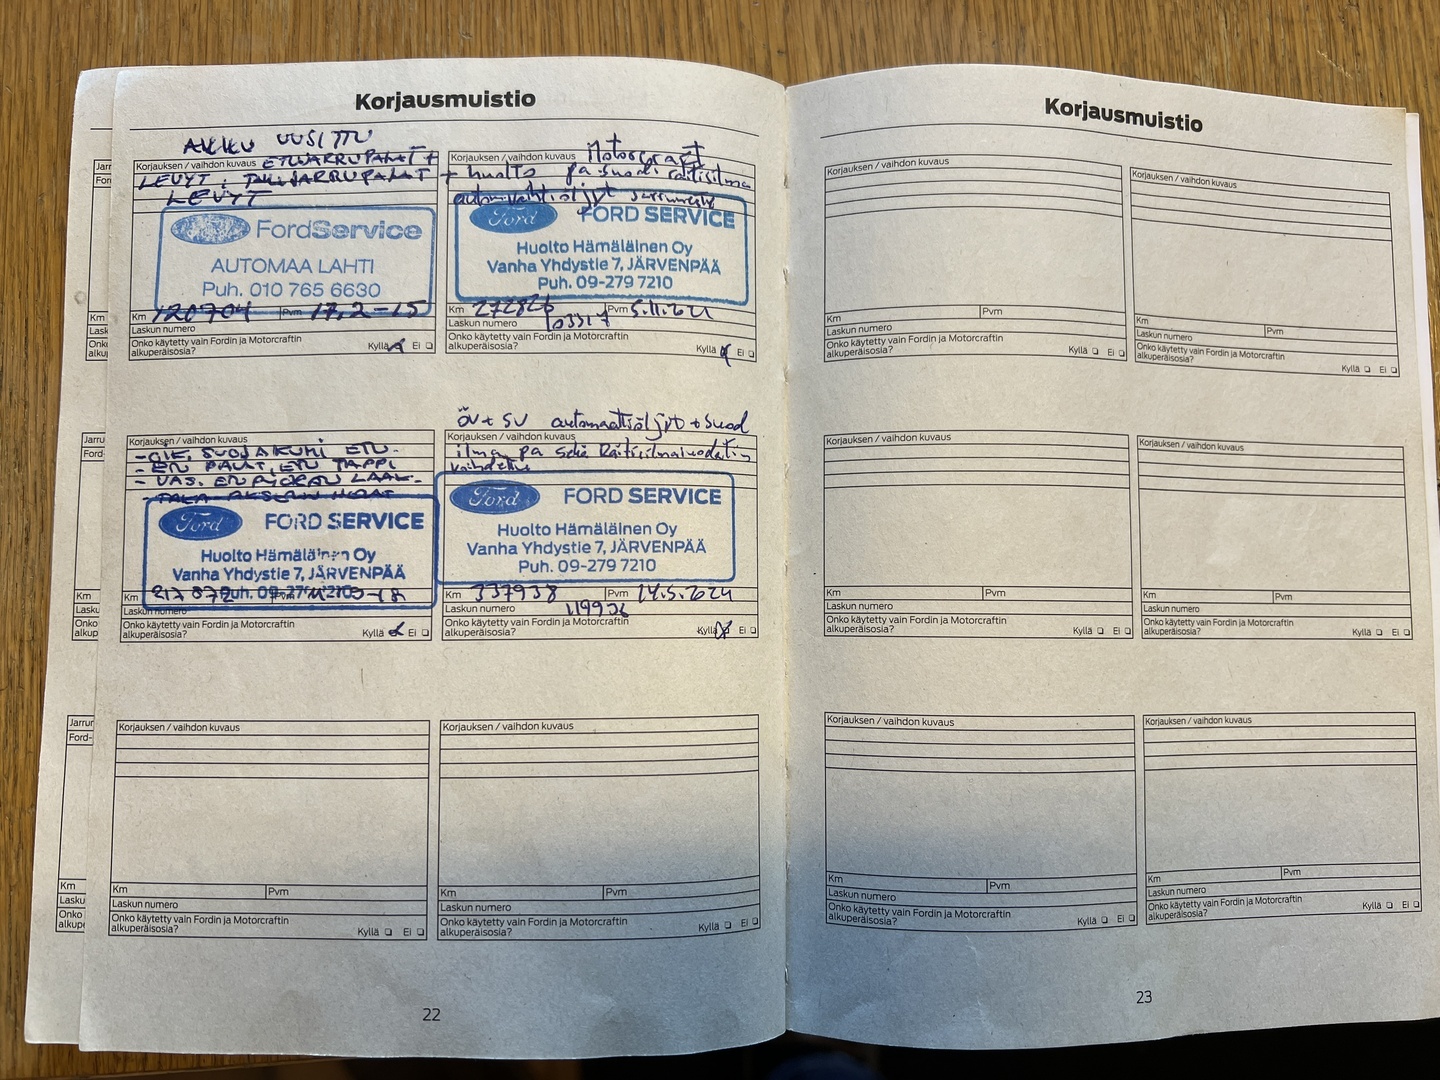 Korjausmuistio
AKKU UUSITTU
Korjauksen / vaihdon kuvaus ETUJARRUPALAT +
LEVYT; TAKAJARRUPALAT
LEVYT
FordService
AUTOMAA LAHTI
Puh. 010 765 6630
Km 120704 Pvm 17.2-15
Laskun numero
Onko käytetty vain Fordin ja Motorcraftin
alkuperäisosia? Kyllä Ei
Motorcraft
Korjauksen / vaihdon kuvaus
+ huolto pa-suod. raitisilma
automaattiöljyt
Ford FORD SERVICE
Huolto Hämäläinen Oy
Vanha Yhdystie 7, JÄRVENPÄÄ
Puh. 09-279 7210
Km 272826 Pvm 5.11.2021
Laskun numero 103317
Onko käytetty vain Fordin ja Motorcraftin
alkuperäisosia? Kyllä Ei
Korjauksen / vaihdon kuvaus
SUOJAKUMI ETU-
- ETU PALAT, ETU TAPPI
- VAS. ETUPYÖRÄN LAAK-
- TAKA AKSELIN
Ford FORD SERVICE
Huolto Hämäläinen Oy
Vanha Yhdystie 7, JÄRVENPÄÄ
Puh. 09-279 7210
Km 217 872 Pvm
Laskun numero
Onko käytetty vain Fordin ja Motorcraftin
alkuperäisosia? Kyllä Ei
ÖV + SV automaattiöljyt + Suod
Korjauksen / vaihdon kuvaus
ilma, pa sekä Raitisilmasuodatin
vaihdettu
Ford FORD SERVICE
Huolto Hämäläinen Oy
Vanha Yhdystie 7, JÄRVENPÄÄ
Puh. 09-279 7210
Km 337938 Pvm 14.5.2024
Laskun numero 119936
Onko käytetty vain Fordin ja Motorcraftin
alkuperäisosia? Kyllä Ei
Korjauksen / vaihdon kuvaus
Km Pvm
Laskun numero
Onko käytetty vain Fordin ja Motorcraftin
alkuperäisosia? Kyllä Ei
Korjauksen / vaihdon kuvaus
Km Pvm
Laskun numero
Onko käytetty vain Fordin ja Motorcraftin
alkuperäisosia? Kyllä Ei
22
Korjausmuistio
Korjauksen / vaihdon kuvaus
Km Pvm
Laskun numero
Onko käytetty vain Fordin ja Motorcraftin
alkuperäisosia? Kyllä Ei
Korjauksen / vaihdon kuvaus
Km Pvm
Laskun numero
Onko käytetty vain Fordin ja Motorcraftin
alkuperäisosia? Kyllä Ei
Korjauksen / vaihdon kuvaus
Km Pvm
Laskun numero
Onko käytetty vain Fordin ja Motorcraftin
alkuperäisosia? Kyllä Ei
Korjauksen / vaihdon kuvaus
Km Pvm
Laskun numero
Onko käytetty vain Fordin ja Motorcraftin
alkuperäisosia? Kyllä Ei
Korjauksen / vaihdon kuvaus
Km Pvm
Laskun numero
Onko käytetty vain Fordin ja Motorcraftin
alkuperäisosia? Kyllä Ei
Korjauksen / vaihdon kuvaus
Km Pvm
Laskun numero
Onko käytetty vain Fordin ja Motorcraftin
alkuperäisosia? Kyllä Ei
23